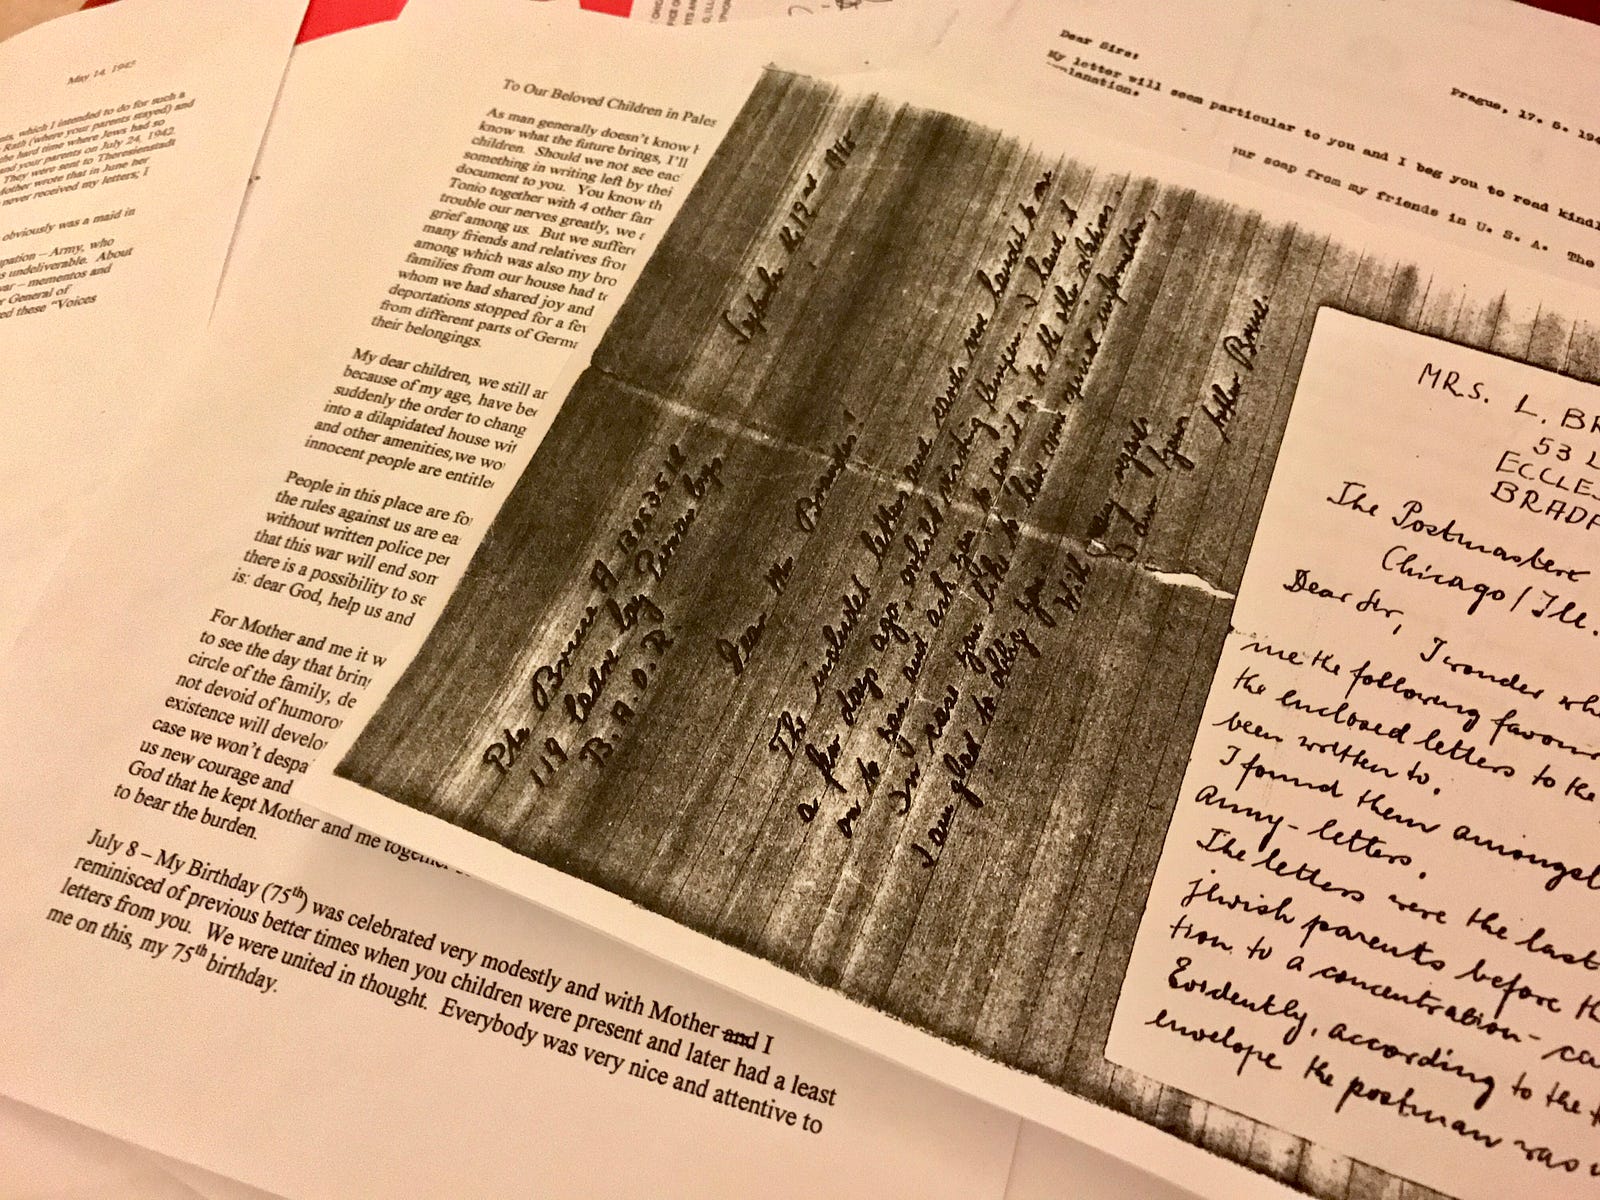 May 14, 1945
which I intended to do for such a
Rath (where your parents stayed) and
the hard time where Jews had so
and your parents on July 24, 1942.
They were sent to Theresienstadt
Mother wrote that in June her
never received my letters; I
obviously was a maid in
Army, who
undeliverable. About
war – mementos and
General of
these "Voices
To Our Beloved Children in Pales
As man generally doesn't know
know what the future brings, I'll
children. Should we not see eac
something in writing left by thei
document to you. You know th
Tonio together with 4 other fam
trouble our nerves greatly, we
grief among us. But we suffere
many friends and relatives from
among which was also my bro
families from our house had to
whom we had shared joy and
deportations stopped for a few
from different parts of Germa
their belongings.
My dear children, we still ar
because of my age, have bee
suddenly the order to chang
into a dilapidated house wit
and other amenities, we wo
innocent people are entitled
People in this place are fo
the rules against us are ea
without written police per
that this war will end som
there is a possibility to se
is: dear God, help us and
For Mother and me it w
to see the day that bring
circle of the family, de
not devoid of humoro
existence will develo
case we won't despa
us new courage and
God that he kept Mother and me together
to bear the burden.
July 8 – My Birthday (75th) was celebrated very modestly and with Mother and I
reminisced of previous better times when you children were present and later had a least
letters from you. We were united in thought. Everybody was very nice and attentive to
me on this, my 75th birthday.
Pte Bruce A 13053518
119 Ladne Coy Pioneer Corps
B.A.O.R.
Dear Mr
The included letters and cards were handed to me
a few days ago, whilst visiting I heard of
on to you and ask you to pass it on to the other relations.
In case you like to have some special information,
I am glad to oblige you
With regards
I am Yours
Arthur Bruce.
Dear Sirs:
Prague, 17. 5. 194
My letter will seem particular to you and I beg you to read kindl
explanation.
our soap from my friends in U. S. A. The
MRS. L. BR
53 L
ECCLES
BRADF
The Postmaster
Chicago / Ill.
Dear Sir,
I wonder whe
me the following favour
the enclosed letters to the
been written to.
I found them amongst
army-letters.
The letters were the last
jewish parents before th
tion to a concentration-ca
Evidently, according to the
envelope the postman was